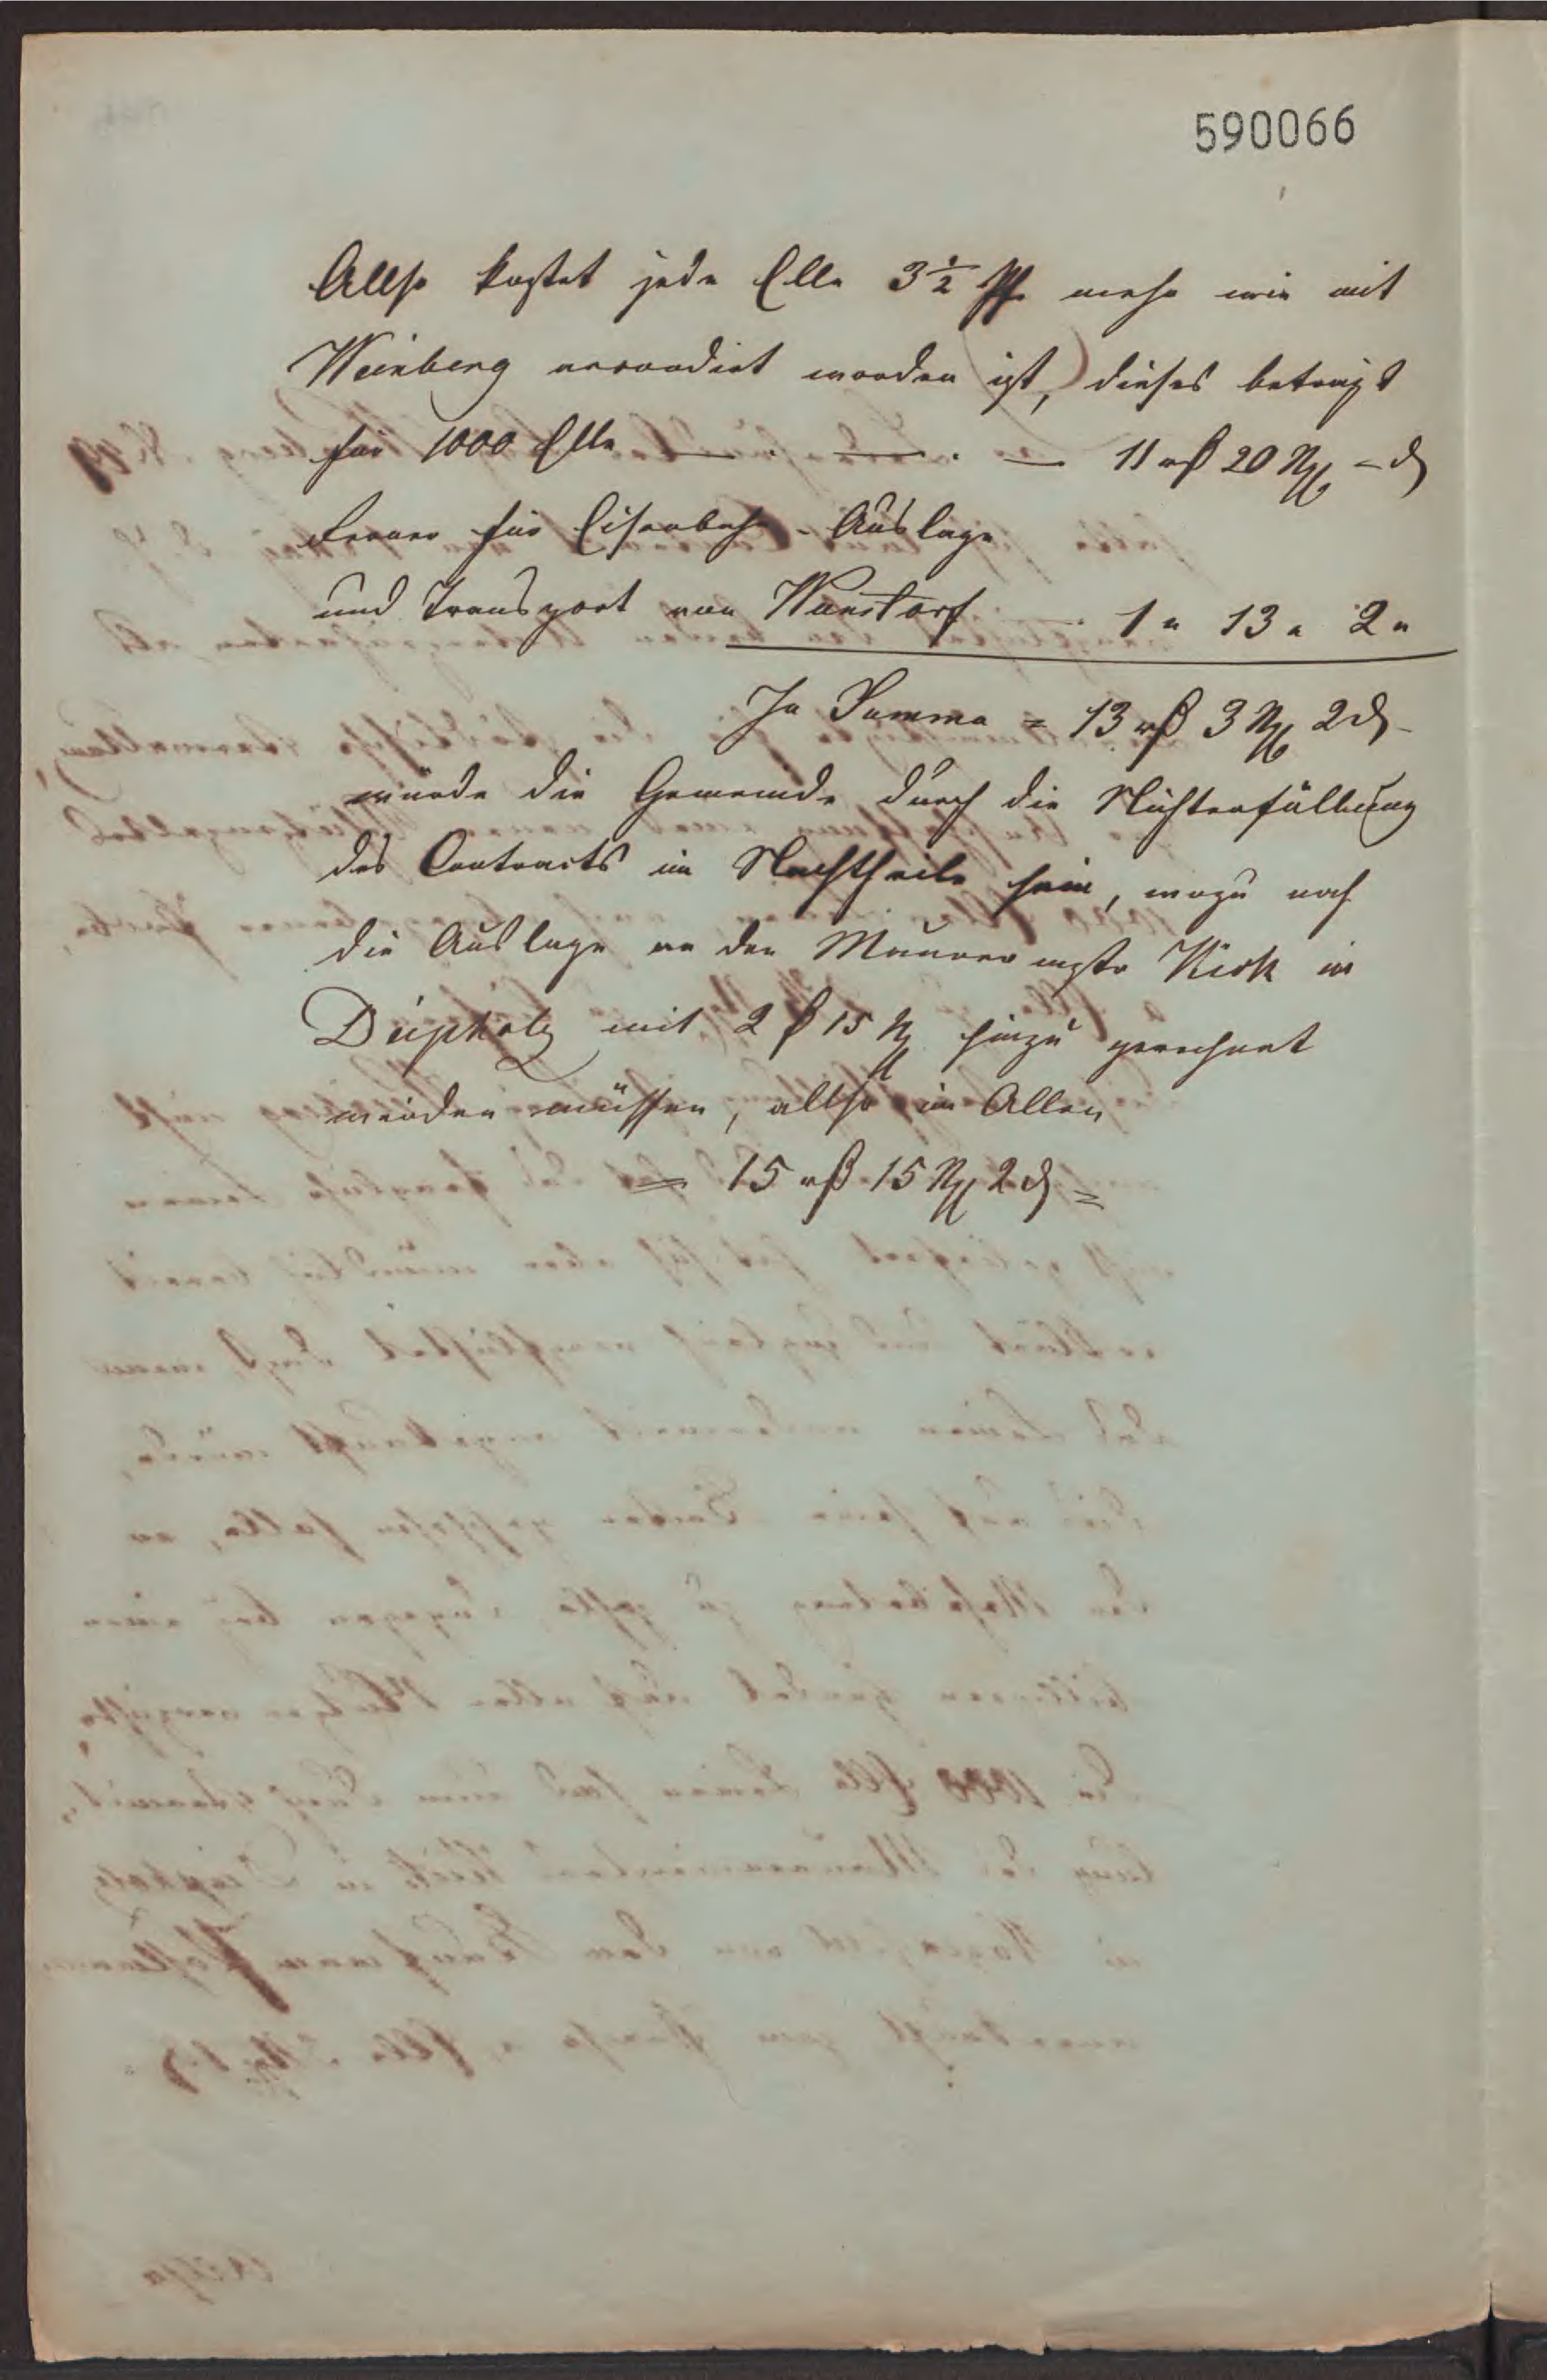 590066
Allso kostet jede Elle 3½ Pf. mehr wie mit
Weinberg accordirt worden ist, dieses beträgt
für 1000 Elle — . — . — 11 rß 20 Ngr – d
Ferner für Eisenbahn-Auslage
und Transport von Wunstorf — 1 " 13 " 2 "
In Summa = 13 rß 3 Ngr 2 d
würde die Gemeinde durch die Nichterfüllung
des Contracts im Nachtheile sein, wozu noch
die Auslage an den Maurermstr in
Diepholz mit 2 ß 15 Ngr hinzu gerechnet
werden müssen, allso im Allen
= 15 rß 15 Ngr 2 d =